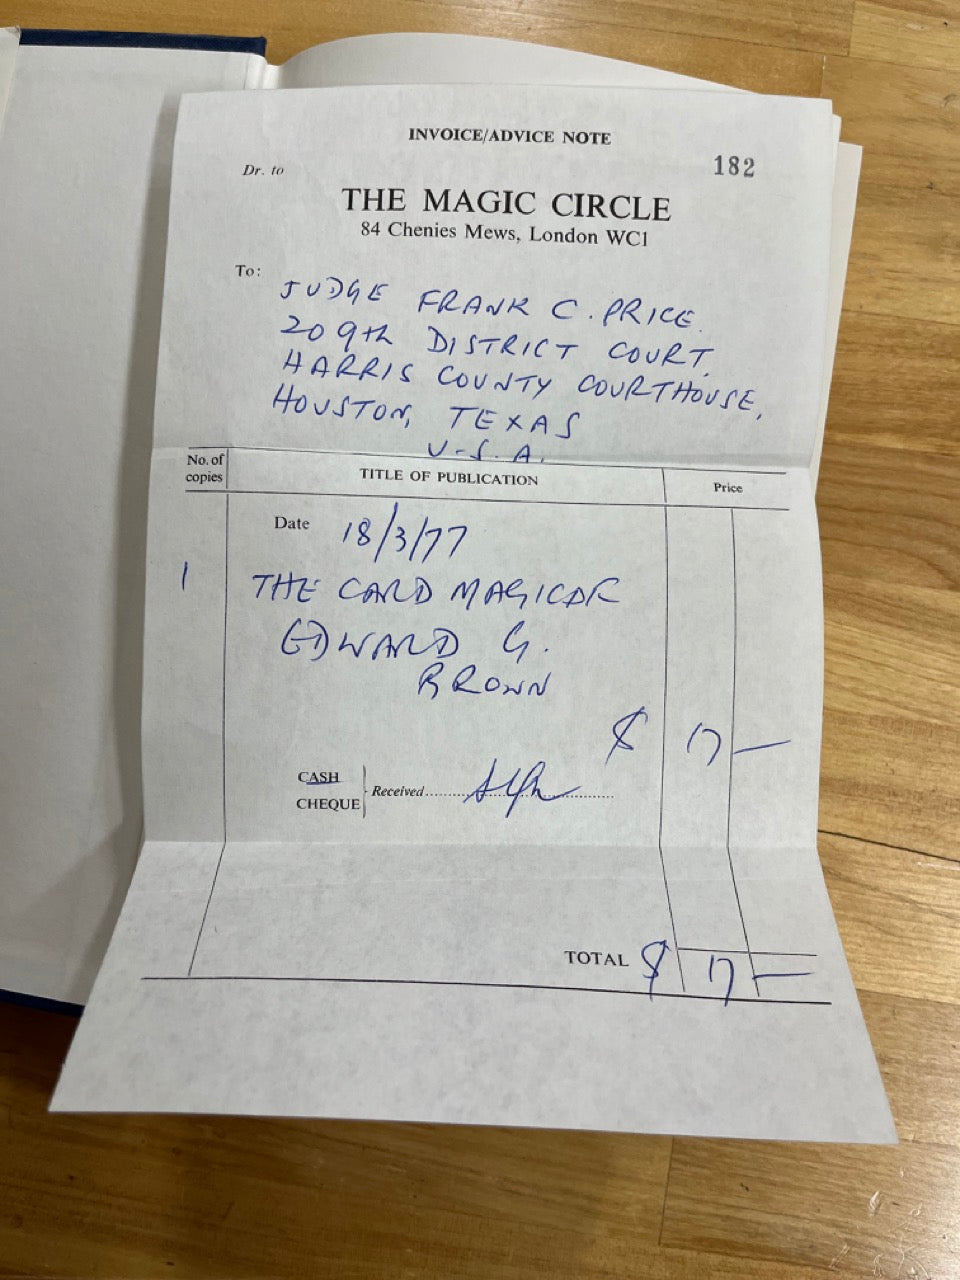 INVOICE/ADVICE NOTE
182
Dr. to
THE MAGIC CIRCLE
84 Chenies Mews, London WC1
To:
JUDGE FRANK C. PRICE.
209th DISTRICT COURT,
HARRIS COUNTY COURTHOUSE,
HOUSTON, TEXAS
U.S.A.
No. of copies TITLE OF PUBLICATION Price
Date 18/3/77
1 THE CARD MAGIC OF
EDWARD G.
BROWN
$ 17 —
CASH
CHEQUE Received
TOTAL $ 17 —